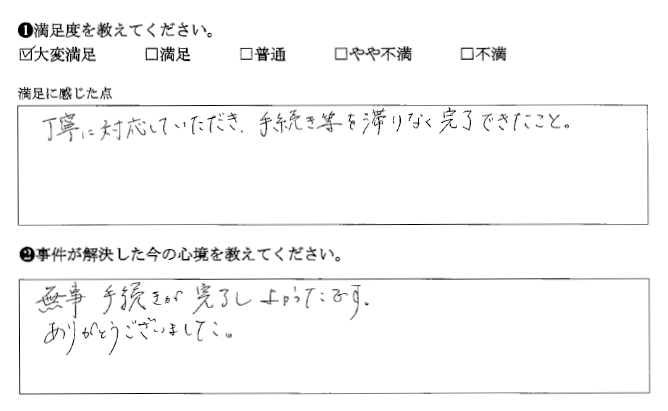 ❶満足度を教えてください。
☑大変満足 □満足 □普通 □やや不満 □不満
満足に感じた点
丁寧に対応していただき、手続き等を滞りなく完了できたこと。
❷事件が解決した今の心境を教えてください。
無事 手続きが 完了し よかったです。
ありがとうございました。